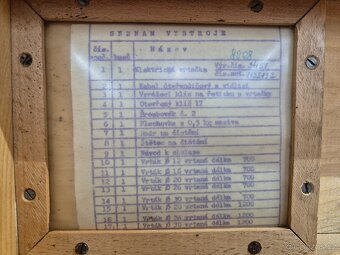 SEZNAM VÝSTROJE
čís. poč. kusů Název
1 1 Elektrická vrtačka
2 1 Kabel
3 1 Vyrážecí klín na řetízku u vrtačky
4 1 Otevřený klíč 17
5 1 Šroubovák č. 2
6 1 Plechovka s 0,5 kg maziva
7 1 Hadr na čistění
8 1 Štětec na čistění
9 1 Návod k obsluze
10 1 Vrták Ø 12 vrtaná délka 700
11 1 Vrták Ø 16 vrtaná délka 700
12 1 Vrták Ø 20 vrtaná délka 700
13 1 Vrták Ø 26 vrtaná délka 700
14 1 Vrták Ø 30 vrtaná délka 700
15 1 Vrták Ø 20 vrtaná délka 1200
16 1 Vrták Ø 26 vrtaná délka 1200
17 1 Vrták Ø 30 vrtaná délka 1200